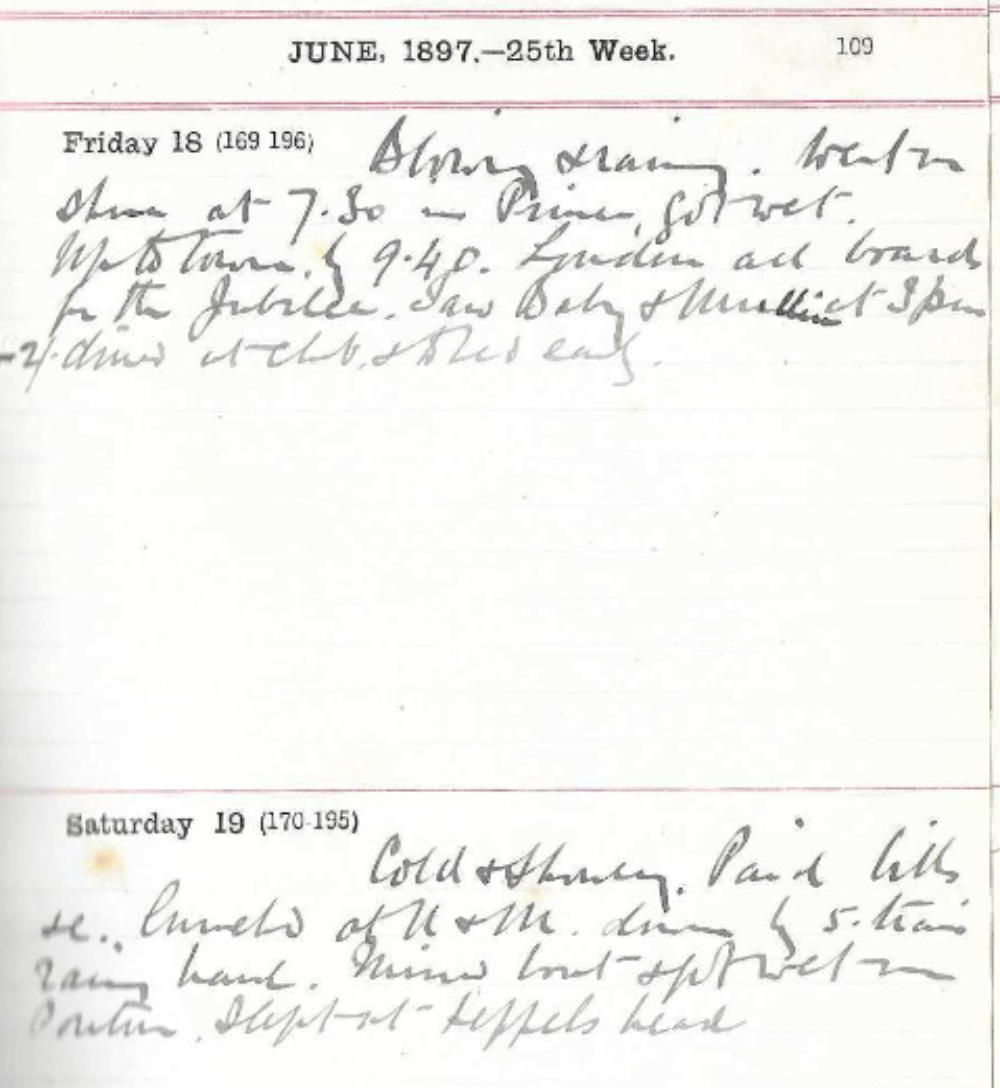 JUNE, 1897.—25th Week. 109
Friday 18 (169 196) Blowing & raining. Went on
shore at 7.30 in got wet.
Up to town by 9.40. London all boards
for the Jubilee. Saw Baby & at 3 pm
dined at club, & to bed early.
Saturday 19 (170-195)
Cold & Showery. Paid bills
&c. Lunched at N & M. down by 5. train
raining hard. Missed boat & got wet on
Pontoon. Slept at Keppels head